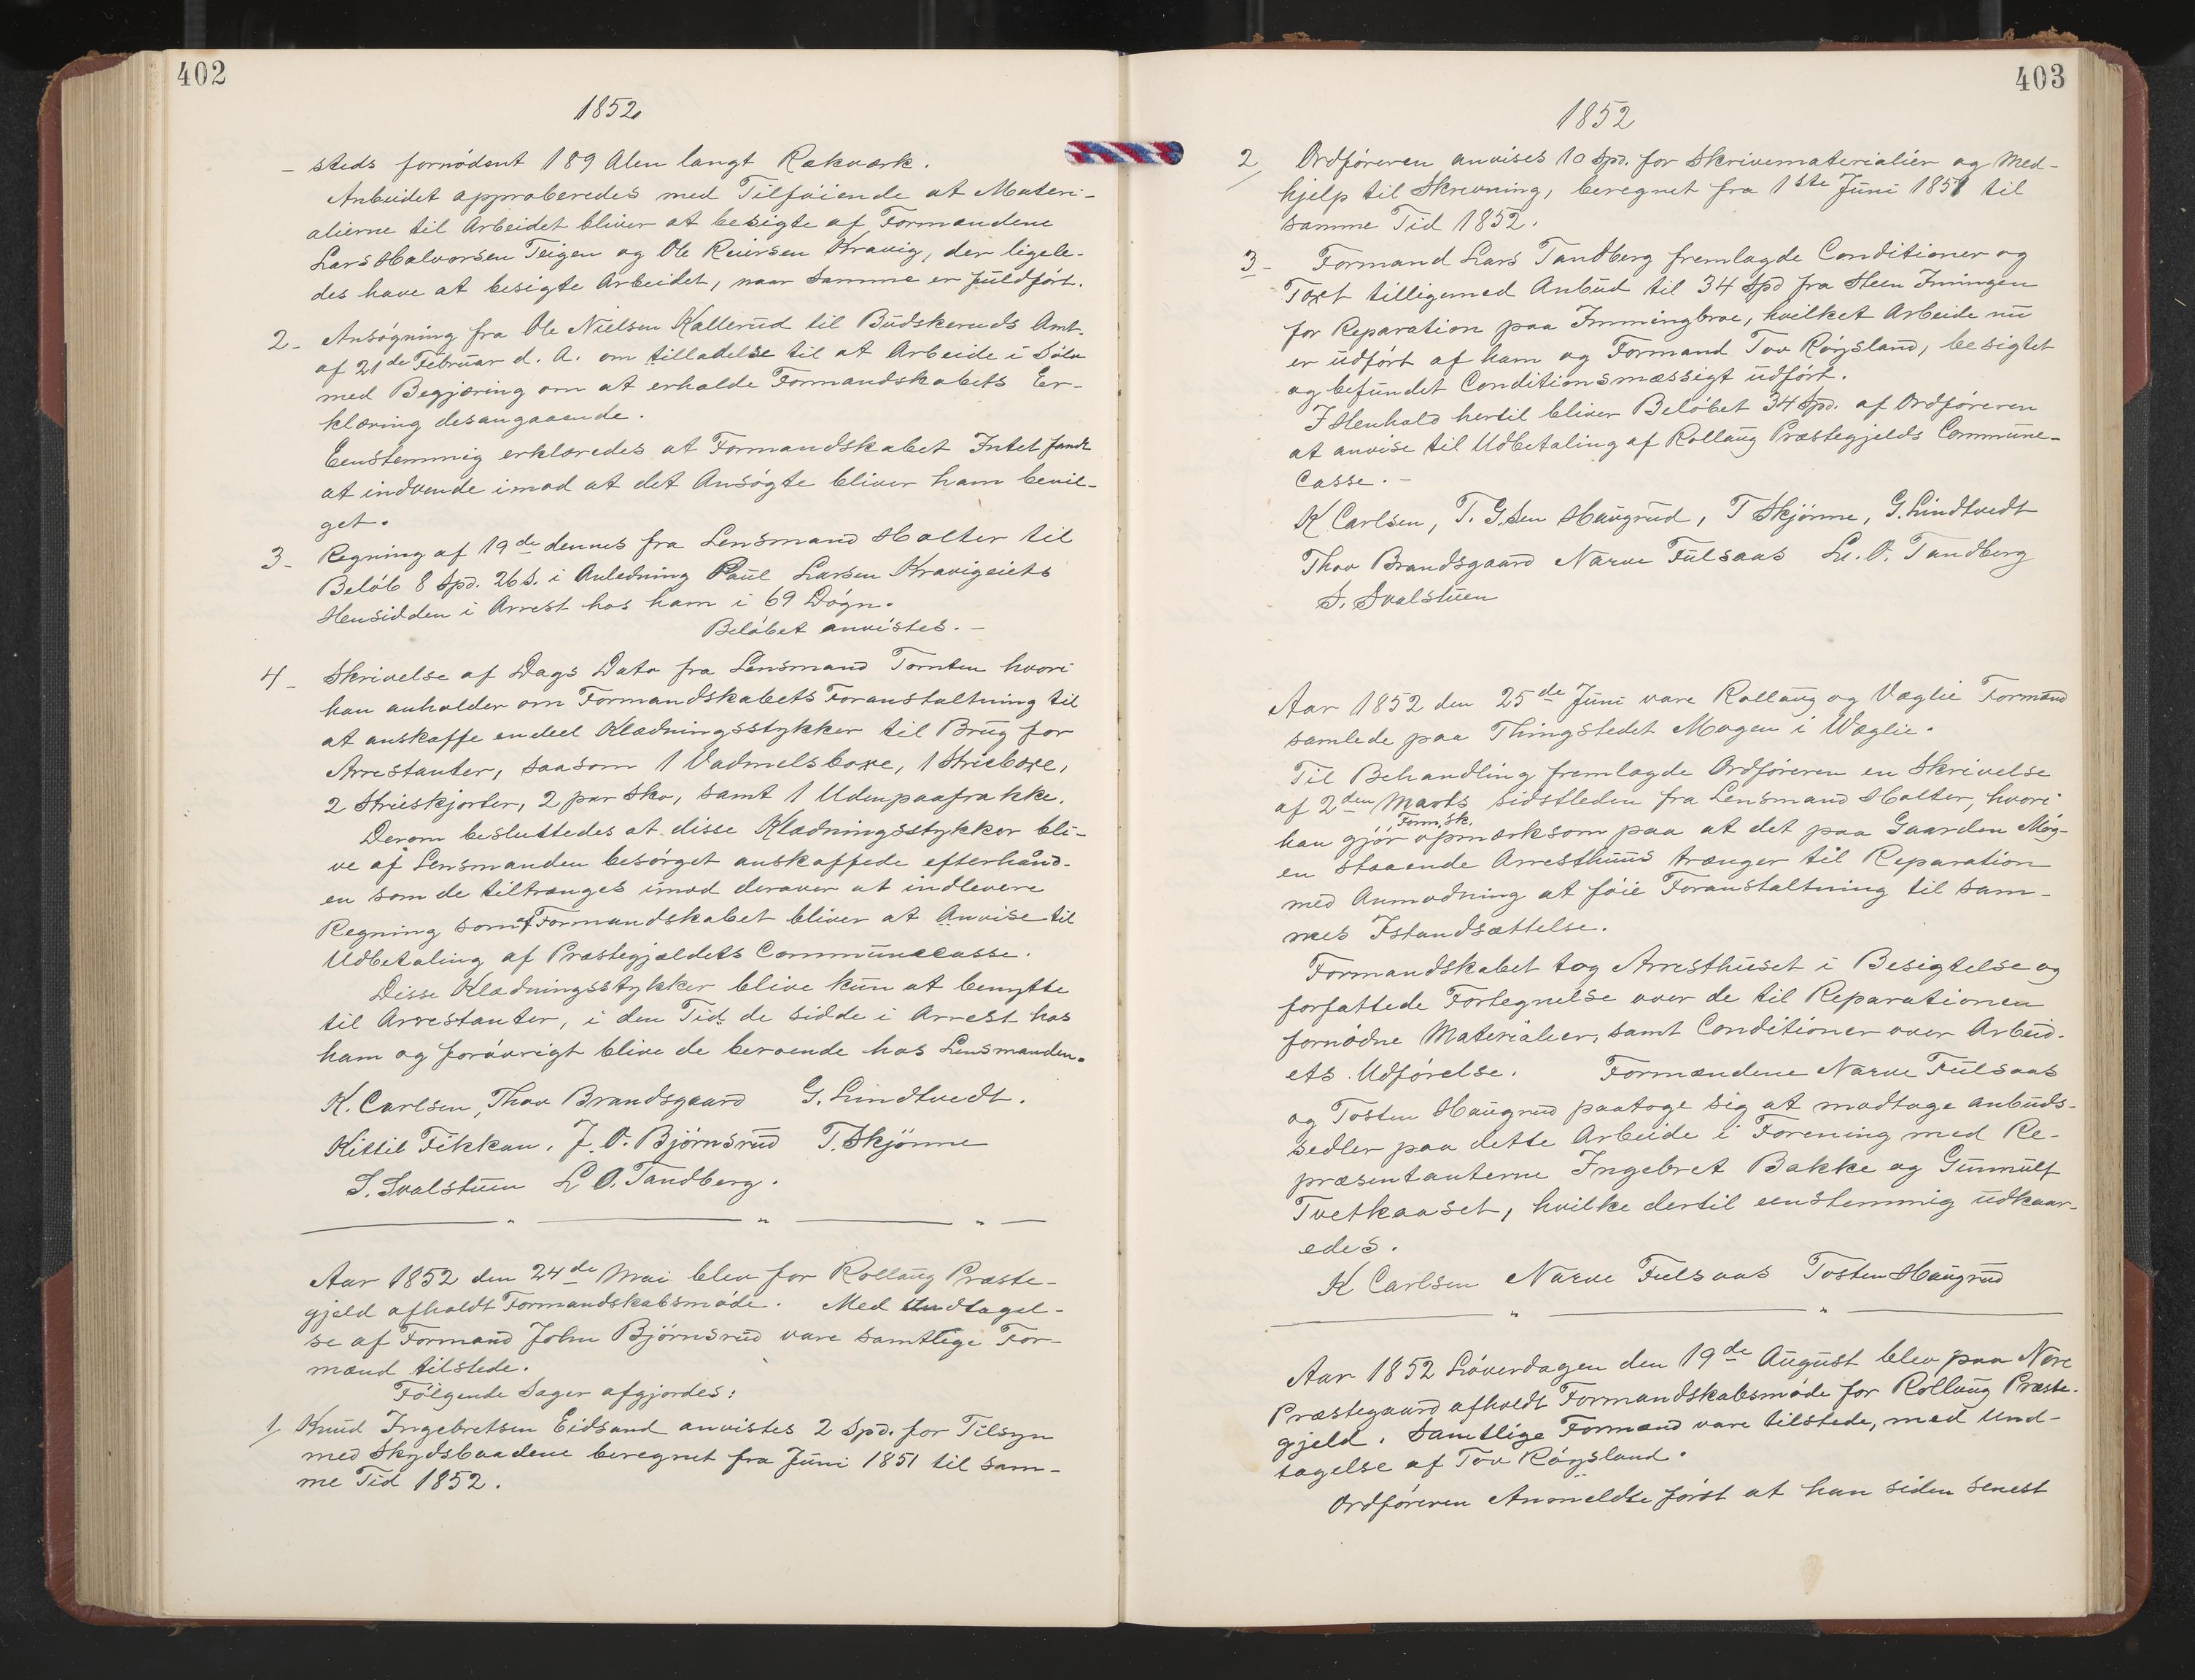 402
1852.
- steds fornødent 189 Alen langt Rækværk.
Anbudet approberedes med Tilføiende at Materi-
alierne til Arbeidet bliver at besigte af Formændene
Lars Halvorsen Teigen og Ole Reiersen Kravig, der ligele-
des have at besigte Arbeidet, naar samme er fuldført.
2- Ansøgning fra Ole Nielsen Kallerud til Budskeruds Amt.
af 21de Februar d. A. om tilladelse til at Arbeide i Sølv
med Begjæring om at erholde Formandskabets Er-
klæring desangaaende.
Eenstemmig erklæredes at Formandskabet Intet fandt
at indvende imod at det Ansøgte bliver ham bevil-
get.
3- Regning af 19de dennes fra Lensmand Holter til
Beløb 8 Spd. 26 s. i Anledning Paul Larsen Kravigeiets
Hensidden i Arrest hos ham i 69 Døgn.
Beløbet anvistes. -
4- Skrivelse af Dags Dato fra Lensmand Tornten hvori
han anholder om Formandskabets Foranstaltning til
at anskaffe endeel Klædningsstykker til Brug for
Arrestanter, saasom 1 Vadmelsboxe, 1 Strieboxe,
2 Strieskjorter, 2 par Sko, samt 1 Udenpaafrakke.
Derom besluttedes at disse Klædningsstykker bli-
ve af Lensmanden besørget anskaffede efterhånd-
en som de tiltrænges imod derover at indlevere
Regning som af Formandskabet bliver at Anvise til
Udbetaling af Præstegjældets Communecasse.
Disse Klædningsstykker blive kun at benytte
til Arrestanter, i den Tid de sidde i Arrest hos
ham og forøvrigt blive de beroende hos Lensmanden.
K. Carlsen, Thov Brandsgaard G. Lindtvedt.
Kittil Fikkan. J. O. Bjørnsrud T. Skjønne
S. Svalstuen L O. Tandberg.
Aar 1852 den 24de Mai blev for Rollaug Præste-
gjeld afholdt Formandskabsmøde. Med Undtagel-
se af Formand John Bjørnsrud vare samtlige For-
mænd tilstede.
Følgende Sager afgjordes:
1/ Knud Ingebretsen Eidsand anvistes 2 Spd. for Tilsyn
med Skydsbaadene beregnet fra Juni 1851 til sam-
me Tid 1852.
403
1852
2/ Ordføreren anvises 10 Spd. for Skrivematerialier og Med-
hjelp til Skrivning, beregnet fra 1ste Juni 1851 til
samme Tid 1852.
3- Formand Lars Tandberg fremlagde Conditioner og
Taxt tilligemed Anbud til 34 Spd fra Steen Imingen
for Reparation paa Immingbroe, hvilket Arbeide nu
er udført af ham og Formand Tov Røysland, besigtet
og befundet Conditionsmæssigt udført.
I Henhold hertil bliver Beløbet 34 Spd. af Ordføreren
at anvise til Udbetaling af Rollaug Præstegjelds Commune-
casse. -
K Carlsen, T. G.sen Haugrud, T Skjønne, G. Lindtvedt
Thov Brandsgaard Narve Fulsaas L. O. Tandberg
S. Svalstuen
Aar 1852 den 25de Juni vare Rollaug og Væglie Formænd
samlede paa Thingstedet Mogen i Wæglie.
Til Behandling fremlagde Ordføreren en Skrivelse
af 2den Marts sidstleden fra Lensmand Holter, hvori
han gjør Form.sk. opmærksom paa at det paa Gaarden Mog-
en staaende Arresthuus trænger til Reparation
med Anmodning at føie Foranstaltning til sam-
mes Istandsættelse.
Formandskabet tog Arresthuset i Besigtelse og
forfattede Fortegnelse over de til Reparationen
fornødne Materialier, samt Conditioner over Arbeid-
ets Udførelse. Formændene Narve Fulsaas
og Tosten Haugrud paatoge sig at modtage anbuds-
sedler paa dette Arbeide i Forening med Re-
præsentanterne Ingebret Bakke og Gunnulf
Tvetkaaset, hvilke dertil eenstemmig udkaar-
edes.
K Carlsen Narve Fulsaas Tosten Haugrud
Aar 1852 Løverdagen den 19de August blev paa Nore
Præstegaard afholdt Formandskabsmøde for Rollaug Præste-
gjeld. Samtlige Formænd vare tilstede, med Und-
tagelse af Tov Røysland.
Ordføreren Anmeldte først at han siden senest